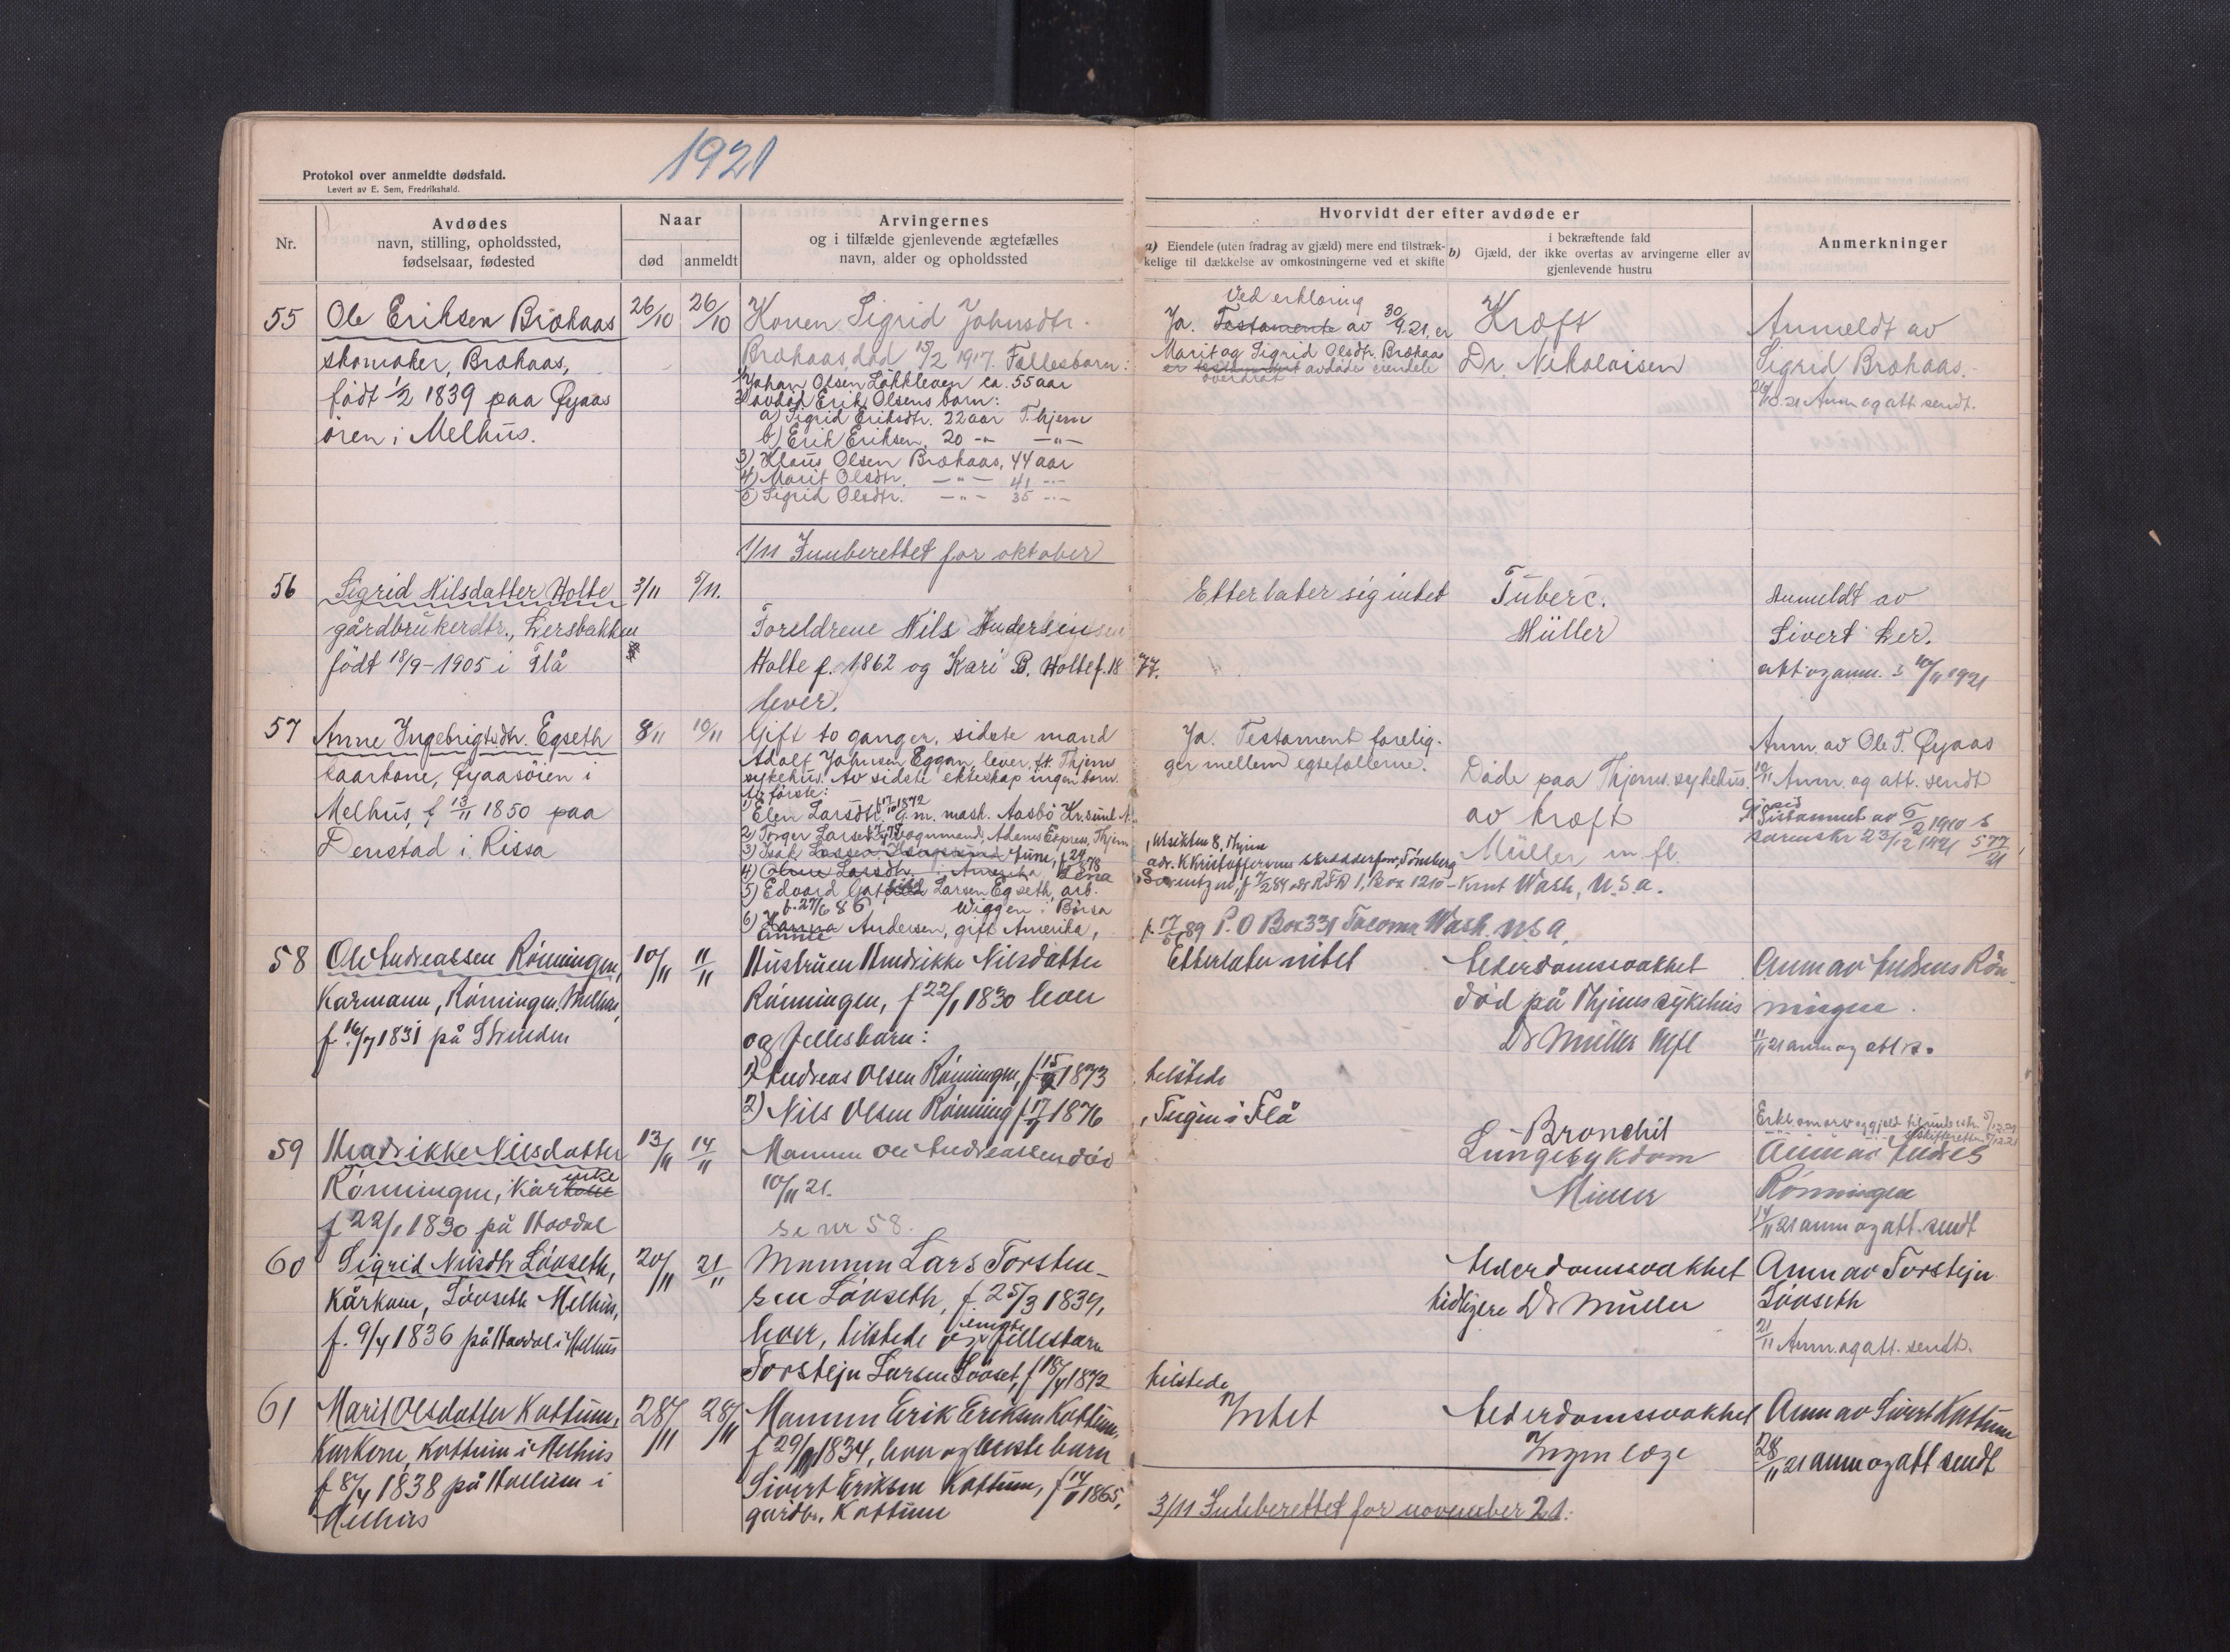 1921
Protokol over anmeldte dødsfald.
Levert av E. Sem, Fredrikshald.
Nr.
Avdødes
navn, stilling, opholdssted,
fødselsaar, fødested
Naar
død
anmeldt
Arvingernes
og i tilfælde gjenlevende ægtefælles
navn, alder og opholdssted
Hvorvidt der efter avdøde er
a) Eiendele (uten fradrag av gjæld) mere end tilstræk-
kelige til dækkelse av omkostningerne ved et skifte
i bekræftende fald
b) Gjæld, der ikke overtas av arvingerne eller av
gjenlevende hustru
Anmerkninger
55
Ole Eriksen Brækaas
skomaker, Brækaas,
født 1/2 1839 paa Øyaas
ören i Melhus.
26/10
26/10
Konen Sigrid Johnsdtr.
Brækaas død 15/2 1917. Fællesbarn:
1) Johan Olsen Løkkleven ca. 55 aar
2) avdød Erik Olsens barn:
a) Sigrid Eriksdtr. 22 aar T.hjem
b) Erik Eriksen, 20 -"- -"-
3) Klaus Olsen Brækaas, 44 aar
4) Marit Olsdtr. -"- 41 -"-
5) Sigrid Olsdtr. -"- 35 -"-
Ved erklæring
Ja. Testamente av 30/9.21, er
Marit og Sigrid Olsdtr. Brækaas
er avdøde eiendele
overdrat
Kræft
Dr. Nikolaisen
Anmeldt av
Sigrid Brækaas.
26/10.21 Anm og att sendt.
1/11 Innberettet for oktober
56
Sigrid Nilsdatter Holte
gårdbrukerdtr., Lersbakken
født 18/9-1905 i Flå
3/11
5/11.
Foreldrene Nils Andersen
Holte f. 1862 og Kari B. Holte f. 1877.
lever.
Etterlater sig intet
Tuberc.
Müller
Anmeldt av
Sivert Ler.
att og anm. s 10/11 1921
57
Anne Ingebrigtsdtr. Egseth
kaarkone, Øyaasöien i
Melhus, f 13/11 1850 paa
Denstad i Rissa
8/11
10/11
Gift to ganger, sidste mand
Adolf Johnsen Eggan, lever, Thjems
sykehus. Av sidste ekteskap ingen barn.
Av første:
1) Elen Larsdtr. f 17/10 1872 g.m. mask. Aasbö Kr.sund N.
2) Torger Larsen vognmand, Adams Express, Thjem
3) Isak Larsen
4) Larsdtr. Amerika Lena
5) Edvard Larsen Egseth, arb.
f. 27/6 86 Wiggen i Börsa
6) Hanna Annie Andersen, gift Amerika,
Ja. Testament forelig-
ger mellem egtefællerne.
adr. K. Kristoffersens skrædderforr., Tönsberg
Kent Wash, U.S.A.
f. 89 P.O Box 331 Tacoma Wash. U.S.A.
Døde paa Thjems. sykehus.
av kræft
Müller m fl.
Anm. av Ole T. Øyaas
10/11 Anm. og att. sendt
1910
23/12 1921 577/21
58
Ole Andreassen Rönningen,
Karmann, Rönningen, Melhus,
f. 16/7 1831 på Strinden
10/11
11/11
Hustruen Hendrikke Nilsdatter
Rönningen, f 22/1 1830 lever
og fellesbarn:
1) Andreas Olsen Rönningen, f 15/9 1873 tilstede
2) Nils Olsen Rönning f 1876, i Flå
Etterlater intet
Alderdomssvakhet
död på Thjems sykehus
Dr Müller
Anm av Andreas Rön
ningen.
11/11 21 anm og att s.
59
Hendrikke Nilsdatter
Rönningen, Kårenke
f 22/1 1830 på Hovdal
13/11
14/11
Mannen Ole Andreassen död
10/11 21.
se nr 58.
Bronchit
Lungesykdom
Müller
Anm av Andreas
Rönningen
14/11 21 anm og att. sendt
60
Sigrid Nilsdtr Löoseth,
Kårkone, Löoseth Melhus,
f. 9/4 1836 på Hovdal i Melhus
20/11
21/11
Mannen Lars Torsten-
sen Löoseth, f. 25/3 1839,
lever, tilstede og eneste fellesbarn
Torstejn Larsen Lööset, f 18/4 1872 tilstede
Alderdomssvakhet
tidligere Dr Müller
Anm av Torstejn
Löoseth
21/11 Anm. og att. sendt.
61
Marit Olsdatter Kattum,
Karkone, Kattum i Melhus
f 8/4 1838 på Hollum i
Melhus
28/11
28/11
Mannen Erik Eriksen Kattum,
f 29/ 1834, lever og eneste barn
Sivert Eriksen Kattum, f 14/ 1865,
gårdbr. Kattum
Intet
Alderdomssvakhet
Ingen læge
Anm av Sivert Kattum
28/11 21 anm og att sendt
3/11 Innberettet for november 21.